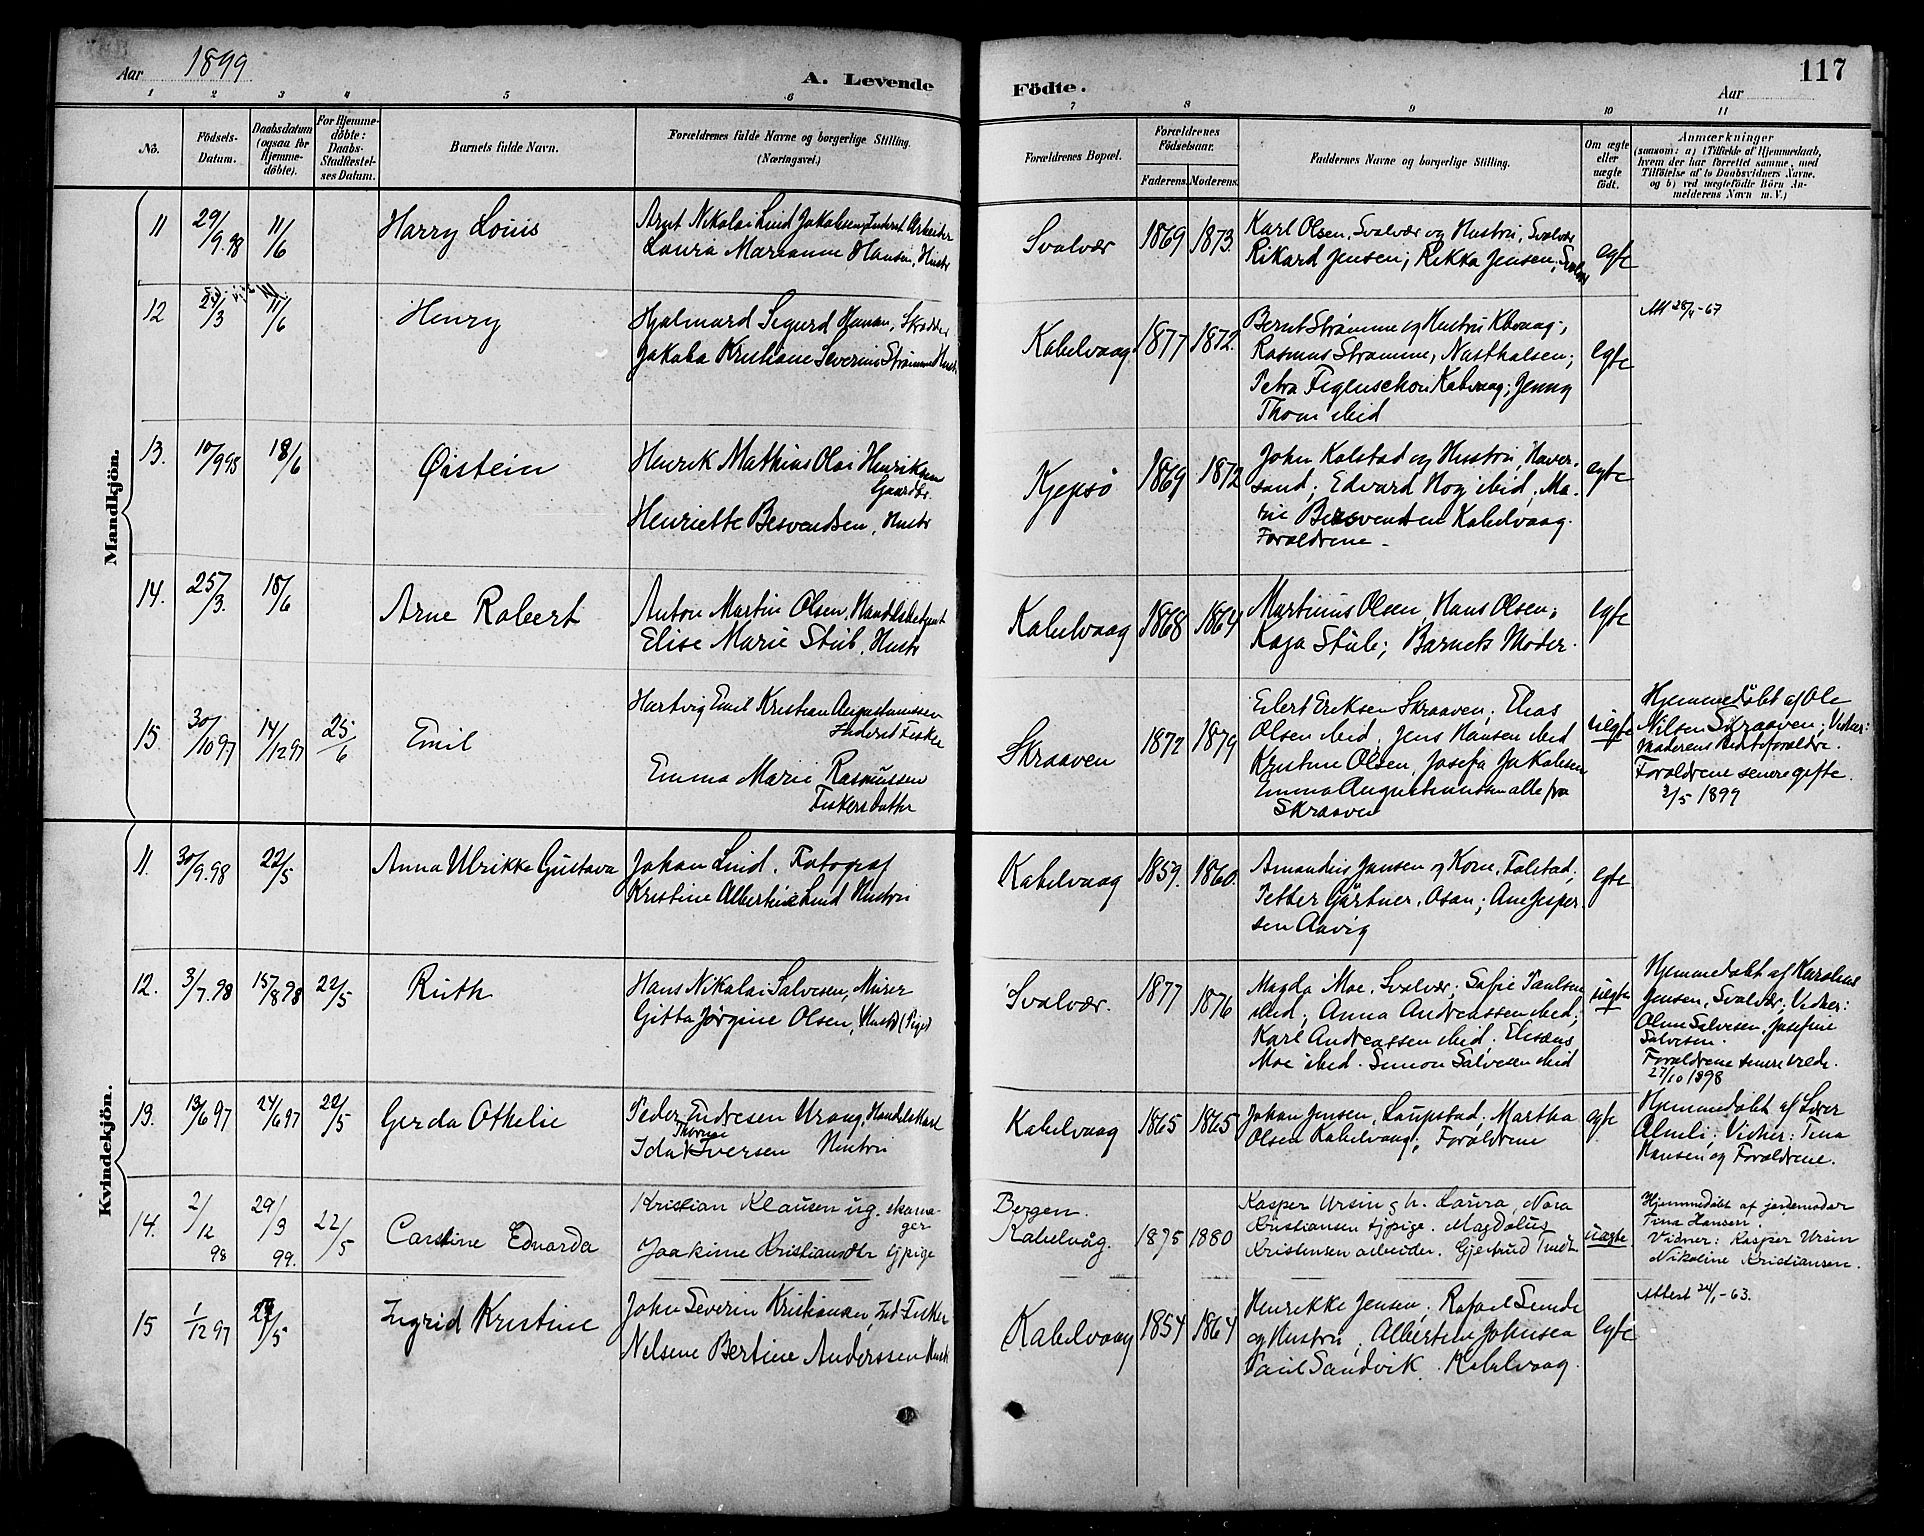 Aar 1899
A. Levende Födte.
117
Aar
1 2 3 4 5 6 7 8 9 10 11
No.
Födsels-Datum.
Daabsdatum (ogsaa for Hjemme-döbte).
For Hjemme-döbte: Daabs-Stadfæstel-ses Datum.
Barnets fulde Navn.
Forældrenes fulde Navne og borgerlige Stilling. (Næringsvei.)
Forældrenes Bopæl.
Forældrenes Födselsaar.
Faderens. Moderens.
Faddernes Navne og borgerlige Stilling.
Om ægte eller uægte födt.
Anmærkninger
(saasom: a) i Tilfælde af Hjemmedaab,
hvem der har forrettet samme, med
Tilföielse af to Daabsvidners Navne.
og b) ved uægtefödte Börn An-
melderens Navn m. V.)
Mandkjön.
11 29/9.98 11/6 Harry Louis
Arnt Nikolai Lind Jakobsen, Inderst Arbeider
Laura Marianne Hansen, Hustr
Svolvær 1869 1873.
Karl Olsen, Svolvær og Hustru, Svolvær
Rikard Jensen; Rikka Jensen,
egte
12 11/6 Henry
Hjalmard Sigurd Hansen, Skrædder
Jakoba Kristiane Severine Strømme Hustr
Kabelvaag. 1877 1872.
Bernt Strømme og Hustru Kbvaag;
Rasmus Strømme,
Petra Figenschou Kabvaag; Jenny
Thom ibid
egte
Att 28/4-67
13. 10/9 98 18/6 Øistein
Henrik Mathias Olai Henriksen
Gaardbr.
Henriette Besvendsen, Hustr
Kjepsø 1869 1872
John Kalstad og Hustru, Haver-
sand; Edvard Hog ibid; Ma-
rie Besvendsen Kabelvaag.
Forældrene -
egte
14. 25/3. 18/6 Arne Robert
Anton Martin Olsen, Handelsbetjent
Elise Marie Stub, Hustr
Kabelvaag 1868 1864
Martinus Olsen, Hans Olsen;
Kaja Stub; Barnets Moder.
egte
15. 30/10 97 14/12 97 25/6 Emil
Hartvig Emil Kristian Augustinussen
Inderst Fisker
Emma Marie Rasmussen
Fiskers Datter
Skraaven 1872 1879
Eilert Eriksen Skraaven; Elias
Olsen ibid; Jens Hansen ibid
Kristine Olsen, Josefa Jakobsen
Emma Augustinussen alle fra
Skraaven
uegte
Hjemmedøbt af Ole
Nilsen Skraaven; Vidner:
Moderens Forældre.
Forældrene senere gifte.
2/5 1899
Kvindekjön.
11. 30/9.98 22/5 Anna Ulrikke Gustava
Johan Lind, Fotograf
Kristine Albertine Lind Hustru
Kabelvaag 1859. 1860.
Amandus Jansen og Kone, Falstad;
Petter Gärtner, Osan; Ane Jesper-
sen Aavig
egte
12. 3/7.98 15/8 98 22/5 Ruth
Hans Nikolai Salvesen, Murer
Gitta Jørgine Olsen, Hustr (Pige)
Svolvær. 1877 1876
Magda Moe, Svolvær; Sofie Paulsen
ibid; Anna Andreassen ibid;
Karl Andreassen ibid;
Moe ibid. Simon Salvesen ibid
uegte
Hjemmedøbt af Karoline
Jensen, Svolvær; Vidner:
Oline Salvesen, Josefine
Salvesen.
Forældrene senere viede
27/10 1898
13. 13/6 97 24/6 97 22/5 Gerda Othelie
Peder Endresen Urang, Handelskarl
Ida Thorine Iversen Hustru
Kabelvaag 1865 1865
Johan Jensen, Laupstad, Martha
Olsen Kabelvaag; Forældrene
egte
Hjemmedøbt af Lærer
Almli; Vidner: Tina
Hansen og Forældrene.
14. 2/12 98 29/3 99. 22/5 Carstine Edvarda
Kristian Klausen ug. skoma-
ger
Joakime Kristiansdtr tjpige
Bergen.
Kabelvåg. 1875 1880
Kasper Ursin g h. Laura, Nora
Kristiansen tjpige. Magdalus
Kristensen arbeider. Gjertrud
uægte.
Hjemmedøbt af jordemoder
Tina Hansen.
Vidner: Kasper Ursin
Nikoline Kristiansen.
15 1/12 97 22/5 Ingrid Kristine
John Severin Kristiansen, Ind. Fisker
Nelsine Bertine Anderssen Hustr
Kabelvaag 1854 1864
Henrikke Jensen, Rafael Sunde
og Hustru; Albertine Johnsen
Paul Sandvik. Kabelvaag.
egte
Attest 24/1-63.